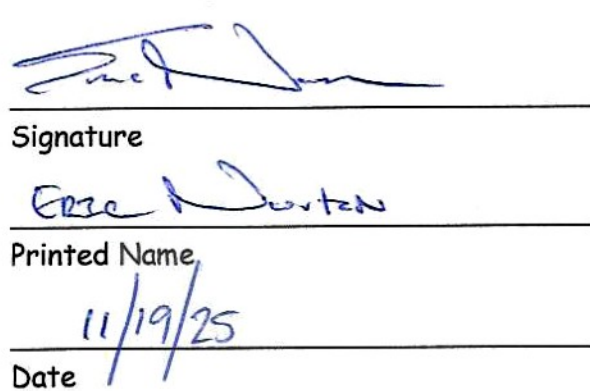 Signature
Eric Norton
Printed Name
11/19/25
Date